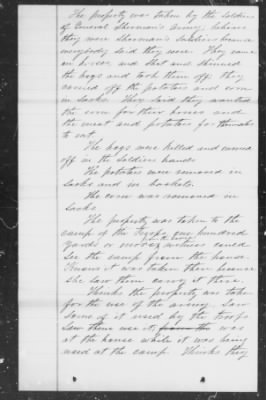 The property was taken by the Soldiers
of General Sherman's Army, believes
they were Sherman's Soldiers because
everybody said they were. They came
in and Shot and Skinned
the hogs and took them off. they
carried off the potatoes and corn
in Sacks. They said they wanted
the corn for their horses and
the meat and potatoes for themselves
to eat.
The hogs were killed and carried
off in the Soldiers hands
The potatoes were removed in
Sacks and in baskets.
The corn was removed in
Sacks.
The property was taken to the
camp of the troops one hundred
yards or more witness could
See the camp from the house.
Knows it was taken there because
She Saw them carry it there.
Thinks the property was taken
for the use of the army. Saw
Some of it used by the troops
Saw them use it, from the was
at the house while it was being
used at the camp. Thinks they